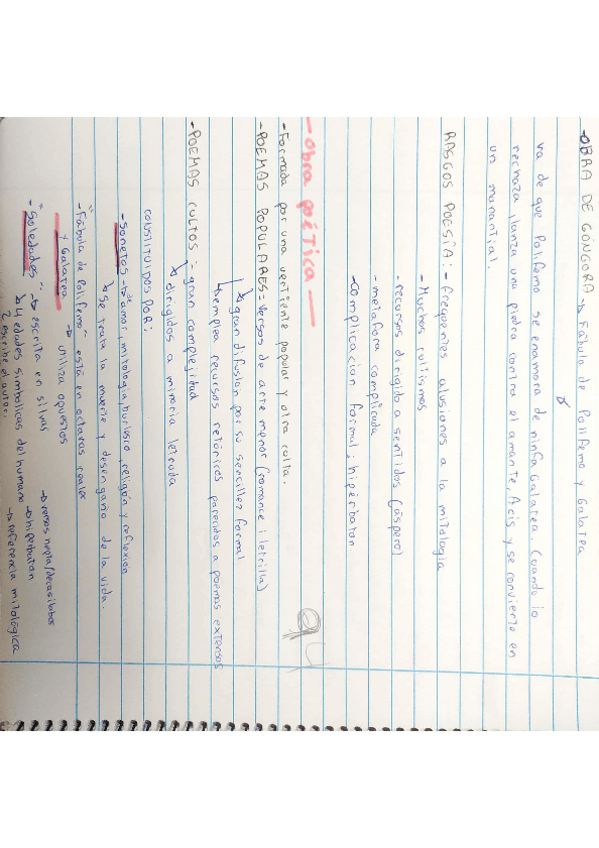 -OBRA DE GÓNGORA → Fábula de Polifemo y Galatea
va de que Polifemo se enamora de ninfa Galatea. Cuando lo
rechaza, lanza una piedra contra el amante, Acis y se convierte en
un manantial.
RASGOS POESÍA: - frequentes alusiones a la mitología
- Muchos cultismos
- recursos dirigido a sentidos (áspero)
- metafora complicada
- Complicacion formal; hipérbaton
- Obra poética -
- Formada por una vertiente popular y otra culta.
- POEMAS POPULARES = Versos de arte menor (romance i letrilla)
↳ gran difusion por su sencillez formal
↳ emplea recursos retóricos parecidos a poemas extensos
- POEMAS CULTOS = gran complejidad
↳ dirigidos a minoria letrada
CONSTITUIDOS POR:
- Sonetos → de amor, mitologia, burlesco, religión y reflexión
↳ Se trata la muerte y desengaño de la vida.
- "Fábula de Polifemo" está en octavas reales
y Galatea → Utiliza opuestos
- "Soledades" → escrita en silvas → versos hepta/decasilabos
↳ 4 edades simbolicas del humano → hiperbaton
2 escribe el autor. → referencia mitológica